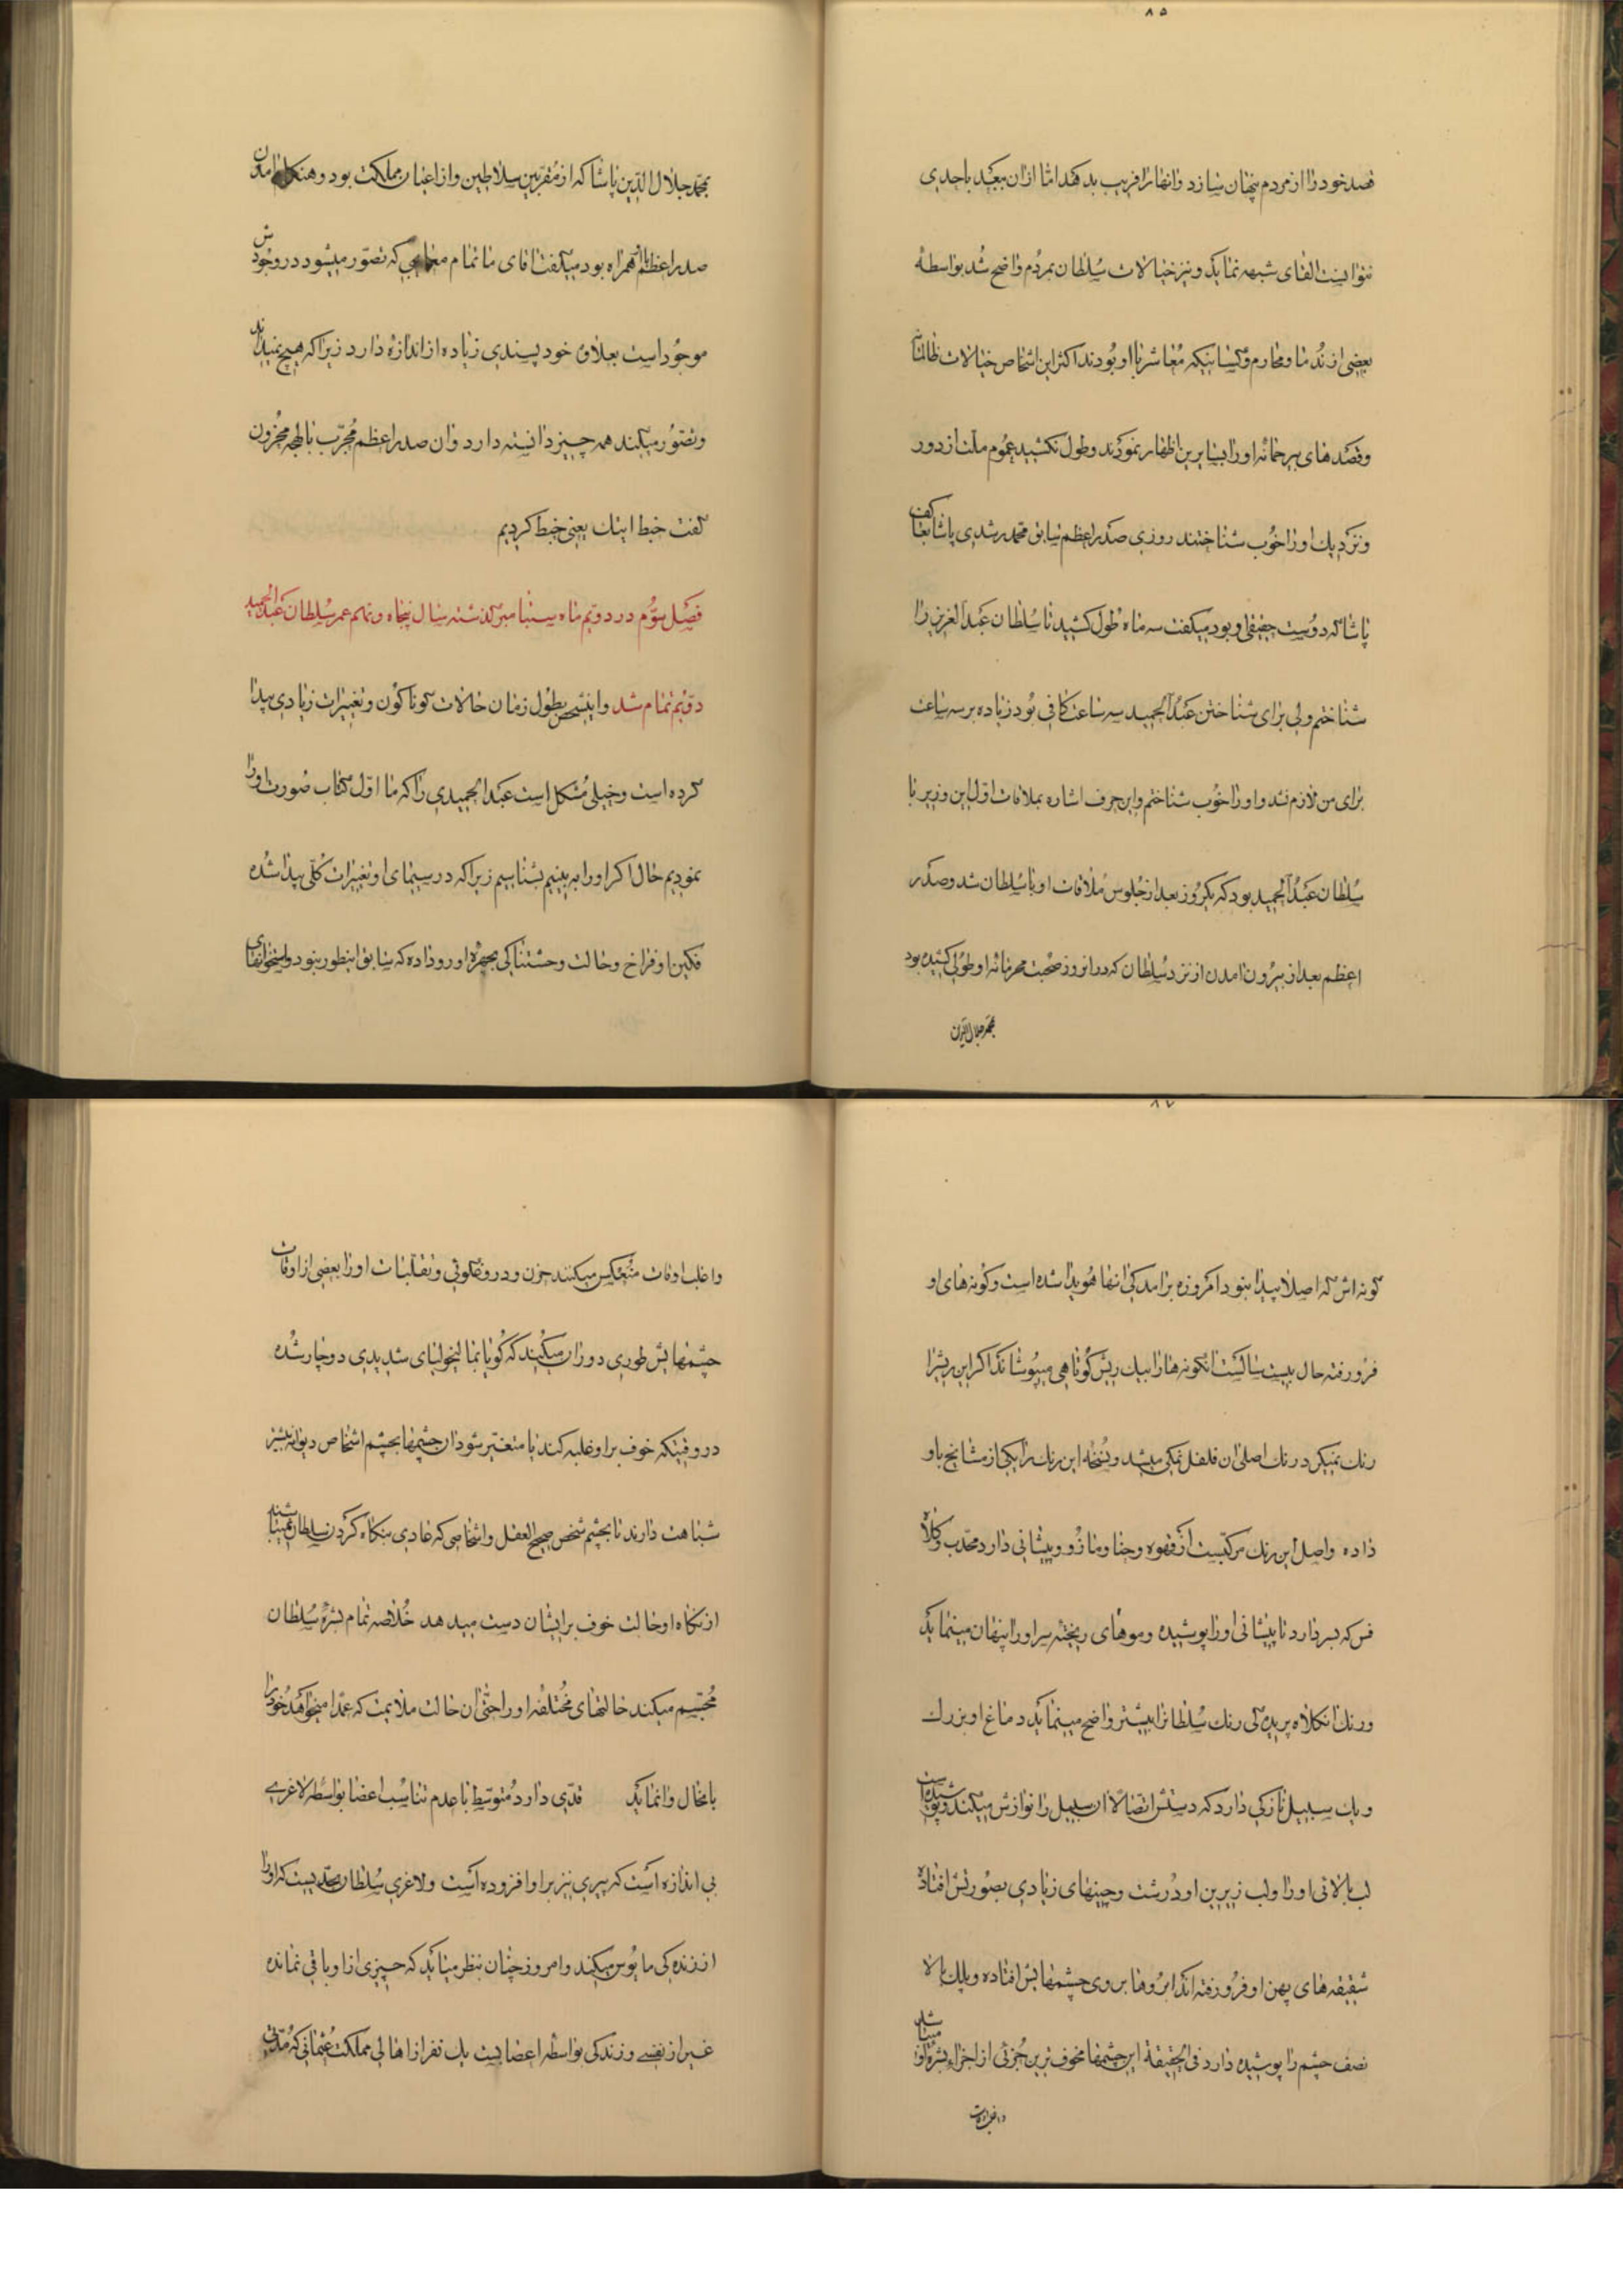 ٨٥
قصد خود را از مردم پنهان سازد و انها را فریب بدهد اما از ان ببعد باحدی
نتوانست القای شبهه نماید و نیز خیالات سلطان بمردم واضح شد بواسطهٔ
بعضی از ندما و محارم و کسانیکه معاشر با او بودند اکثر این اشخاص خیالات ظالمانه
و قصدهای بیرحمانه او را بسایرین اظهار نمودند و طول نکشید عموم ملت از دور
و نزدیک او را خوب شناختند روزی صدراعظم سابق محمد رشدی پاشا بعاکف
پاشا که دوست حقیقی او بود میگفت سه ماه طول کشید تا سلطان عبدالعزیز را
شناختم ولی برای شناختن عبدالحمید سه ساعت کافی بود زیاده بر سه ساعت
برای من لازم نشد و او را خوب شناختم و این حرف اشاره بملاقات اول این وزیر با
سلطان عبدالحمید بود که یکروز بعد از جلوس ملاقات او با سلطان شد و صدر
اعظم بعد از بیرون امدن از نزد سلطان که در انروز صحبت محرمانه او طولی کشیده بود
بمحمد جلال الدین
بمحمد جلال الدین پاشا که از مقربین سلاطین و از اعیان مملکت بود و هنگام امدن
صدراعظم با او همراه بود میگفت اقای ما تمام معایبی که تصور میشود در وجودش
موجود است بعلاوه خود پسندی زیاده از اندازه دارد زیرا که هیچ نمیداند
و تصور میکند همه چیز دانسته دارد و ان صدراعظم مجرب با لهجه محزون
گفت خبط ایتك یعنی خبط کردیم
فصل سوم در دویم ماه سپتامبر گذشته سال پنجاه و نهم عمر سلطان عبدالحمید
دویم تمام شد و اینشخص بطول زمان حالات گوناگون و تغییرات زیادی پیدا
کرده است و خیلی مشکل است عبدالحمیدی را که ما اول کتاب صورت او را
نمودیم حال اگر او را به بینیم بشناسیم زیرا که در سیمای او تغییرات کلی پیدا شده
فکین او فراخ و حالت وحشتناکی بچهره او رو داده که سابق اینطور نبود و استخوانهای
٨٧
گونه اش که اصلا پیدا نبود امروزه برامدگی انها هویدا شده است و گونه های او
فرو رفته حال بیست سالست انگونه ها را بیک ریش کوتاهی میپوشاند اگر این ریش را
رنگ نمیکرد رنگ اصلی ان فلفل نمکی میشد و نسخه این رنگ را یکی از مشایخ باو
داده و اصل این رنگ مرکبست از قهوه و حنا و مازو و پیشانی دارد محدب و کلاه
فس که بسر دارد تا پیشانی او را پوشیده و موهای ریخته سر او را پنهان مینماید
و رنگ انکلاه پریده گی رنگ سلطانرا بیشتر واضح مینماید دماغ او بزرگ
و یک سبیل نازکی دارد که دستش اتصالا ان سبیل را نوازش میکند و پوشیده است
لب بالائی او را و لب زیرین او درشت و چینهای زیادی بصورتش افتاده
شقیقه های پهن او فرو رفته اند ابروها بر روی چشمهایش افتاده و پلک بالا
نصف چشم را پوشیده دارد فی الحقیقة این چشمها مخوف ترین جزئی از اجزاء بشره او میباشد
و اغلب اوقات
و اغلب اوقات منعکس میکنند حزن و دروغگوئی و تقلبات او را بعضی از اوقات
چشمهایش طوری دوران میکنند که گویا بمالیخولیای شدیدی دوچار شده
در وقتیکه خوف بر او غلبه کند یا متغیر شود ان چشمها بچشم اشخاص دیوانه بیشتر
شباهت دارند تا بچشم شخص صحیح العقل و اشخاصی که عادی بنگاه کردن سلطان نمیباشند
از نگاه او حالت خوف بر ایشان دست میدهد خلاصه تمام بشرهٔ سلطان
مجسم میکند حالتهای مختلفه او را حتی ان حالت ملایمت که عمدا میخواهد خود را
بانحال وانماید قدی دارد متوسط با عدم تناسب اعضا بواسطه لاغری
بی اندازه است که پیری نیز بر او افزوده است و لاغری سلطان بحدیست که او را
از زنده گی مایوس میکند و امروز چنان بنظر میاید که چیزی از او باقی نمانده
غیر از نفسی و زندگی بواسطه اعضا بیست یک نفر از اهالی مملکت عثمانی که مدتی